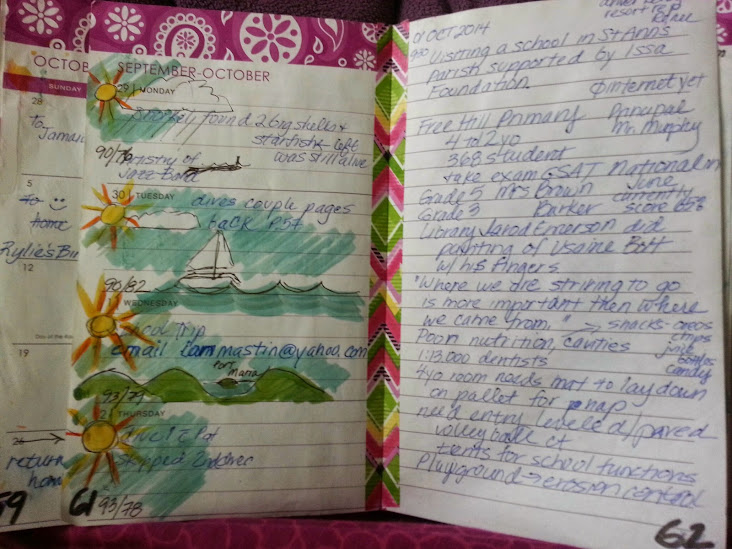 OCTOBER
SUNDAY
28
to
Jamai
5
to
home
Rylie's Bir
12
19
return
hom
59
SEPTEMBER-OCTOBER
29 MONDAY
Snorkel found 2 big shells &
starfish left
was still alive
90/76
Artistry of
Jazz Band
30 TUESDAY
dives couple pages
back P.57
90/82
1 WEDNESDAY
School Trip
email iammastin@yahoo.com
Maria
93/79
2 THURSDAY
Dive 1
skipped 2nd dive
93/78
61
resort
01 OCT 2014
930 Visiting a school in St Anns
Parish supported by Issa
Foundation. Ø internet yet
Free Hill Primary Principal
Mr. Murphy
4 to 12 yo
368 student
take exam GSAT National in
June
Grade 5 Mrs Brown currently
Grade 3 Barker score 65%
Library Jarod Emerson did
painting of Usaine Bolt
w/ his fingers
"Where we are striving to go
is more important then where
we came from." → snacks-oreos
chips
Poor nutrition, cavities juice
1:13,000 dentists candy
4yo room needs mat to lay down
on pallet for nap
need entry leveled/paved
volleyball ct
tents for school functions
Playground → erosion control
62